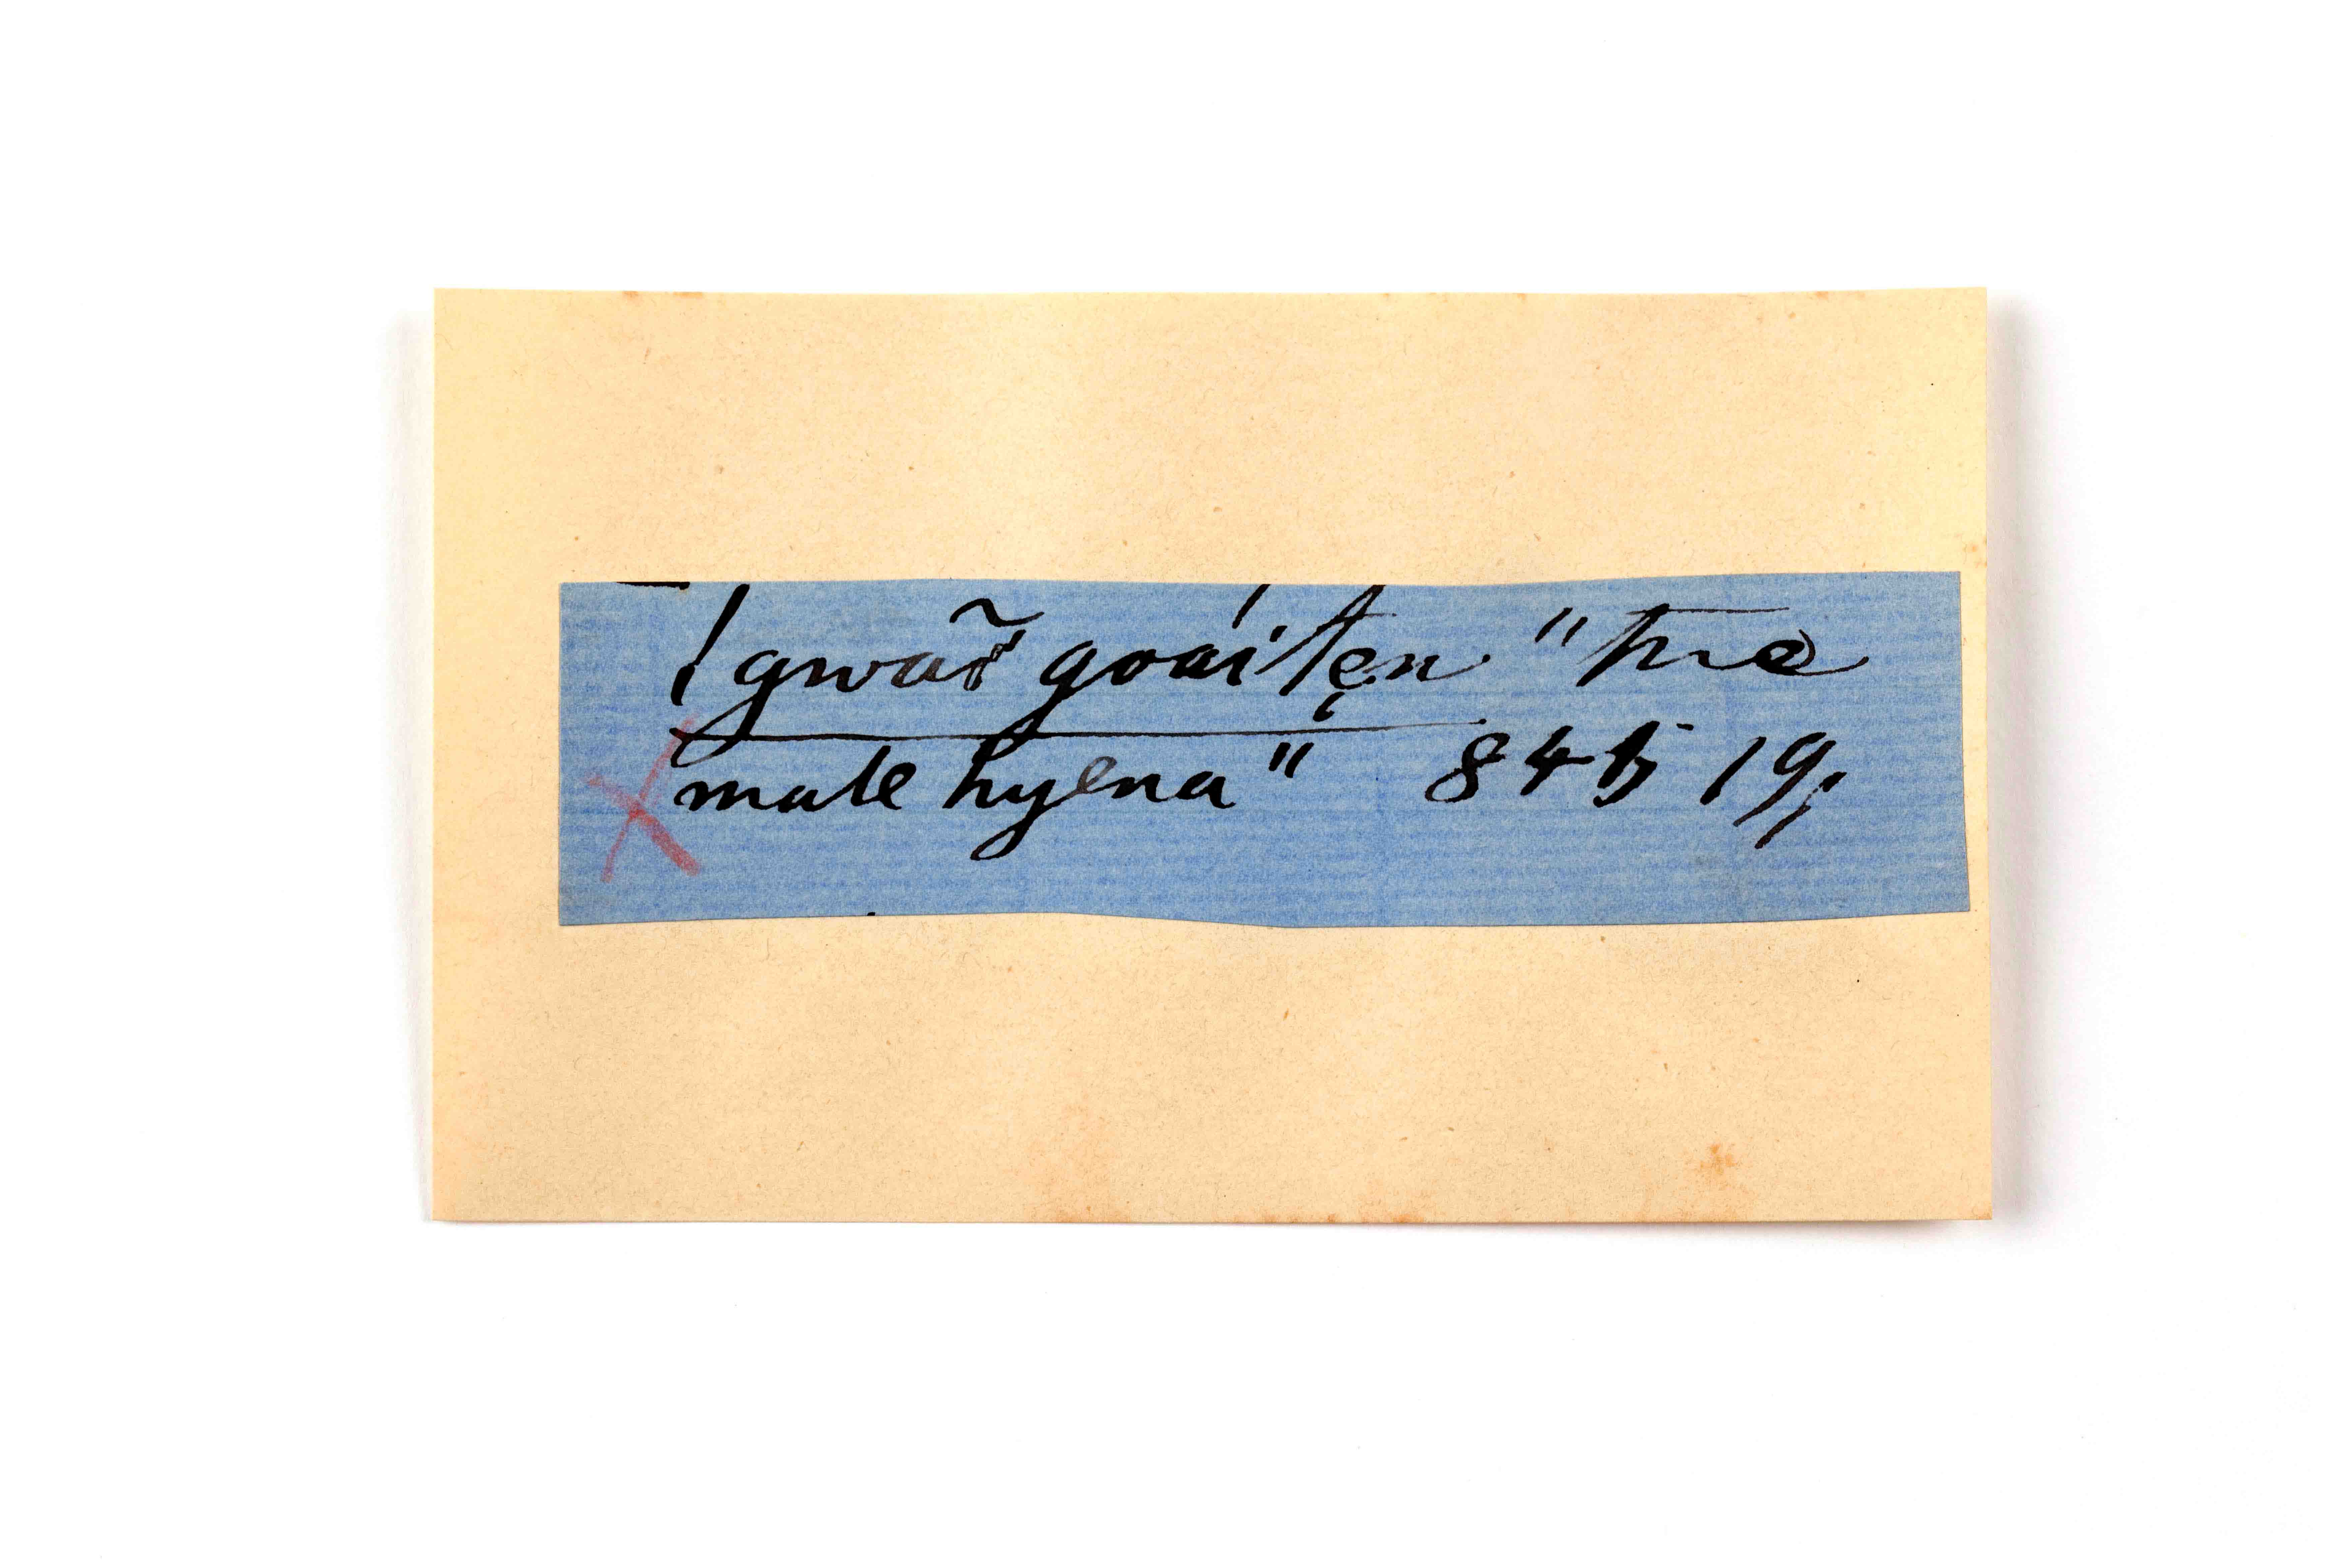 /gwaı̃ goaiʹten "The
male hyena" 845 19,